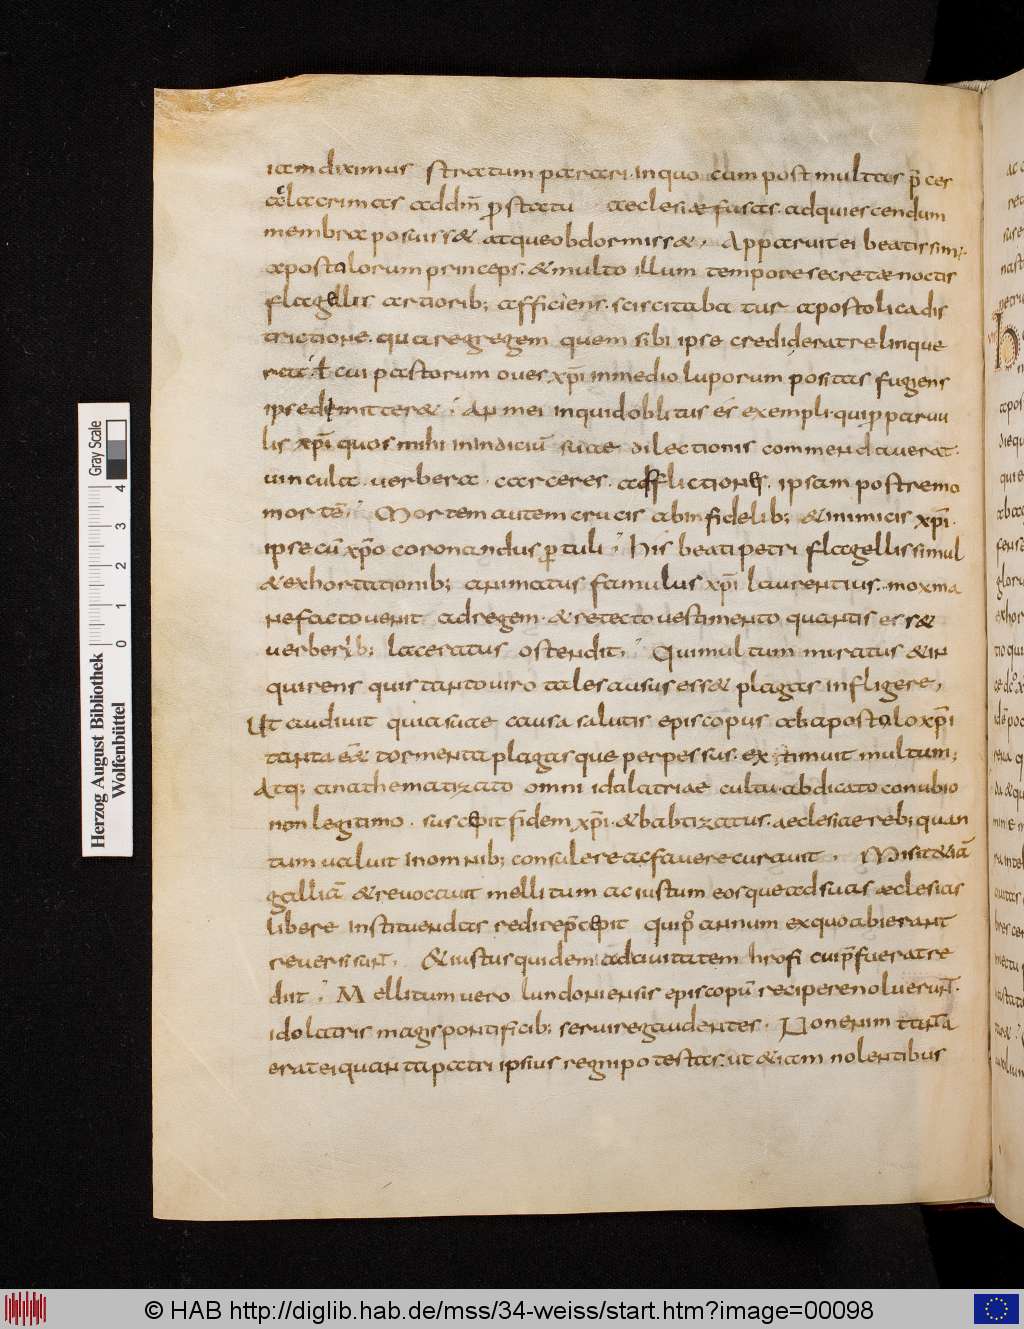 iam diximus stratum parari. in quo cum post multas p̄ces
& lacrimas ad dn̄m ꝓ statu aeclesiæ fusas. ad quiescendum
membra posuiss&. atque obdormiss&, Apparuit ei beatissim;
apostolorum princeps. & multo illum tempore secretæ noctis
flagellis artiorib; afficiens. sciscitaba tur apostolica dis
trictione. quare gregem quem sibi ipse crediderat relinque
ret ł cui pastorum oues xp̄i in medio luporum positas fugiens
ipse dimitter&? An mei inquid oblitus és exempli. qui ꝓ paruu
lis xp̄i quos mihi in indiciū suae dilectionis commendauerat.
uincula. uerbera. carceres. afflictiones. ipsam postremo
mortē. Mortem autem crucis ab infidelib; & inimicis xp̄i.
ipse cū xp̄o coronandus ꝑtuli? His beati petri flagellis simul
& exhortationib; animatus famulus xp̄i laurentius. mox ma
ne facto uenit ad regem. & retecto uestimento quantis ess&
uerberib; laceratus ostendit. Qui multum miratus & in
quirens quis tanto uiro tales ausus ess& plagas infligere,
Ut audiuit quia suae causa salutis episcopus ab apostolo xp̄i
tanta eēt tormenta plagasque perpessus. extimuit multum;
Atq; anathematizato omni idolatriae cultu. abdicato conubio
non legitimo. suscepit fidem xp̄i. & babtizatus. aeclesiae reb; quan
tum ualuit in omnib; consulere ac fauere curauit. Misit &iā
galliā & reuocauit mellitum ac iustum eosque ad suas æclesias
libere instituendas redire p̄cepit qui ꝑ annum ex quo abierant
reuersi sunt. & iustus quidem ad ciuitatem hrofi cui p̄fuerat re
diit. Mellitum uero lundoniensis episcopū recipere noluerunt.
idolatris magis pontificib; seruire gaudentes. Non enim tanta
erat ei quanta patri ipsius regni potestas. ut &iam nolentibus
Herzog August Bibliothek
Wolfenbüttel
Gray Scale
0 1 2 3 4
© HAB http://diglib.hab.de/mss/34-weiss/start.htm?image=00098